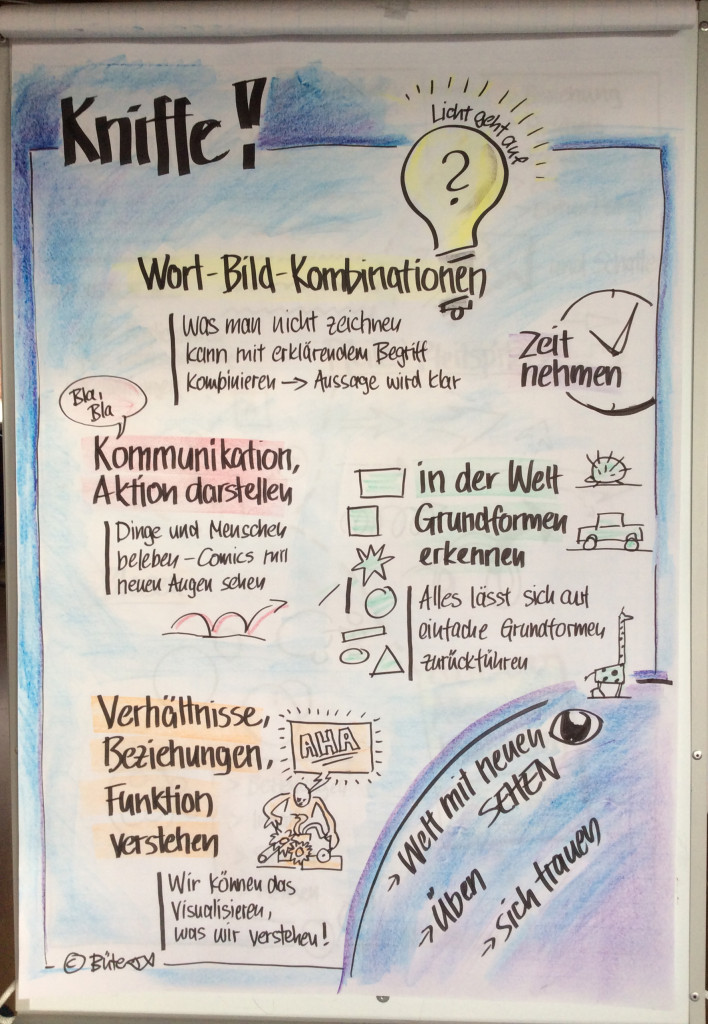 Kniffe!
Licht geht auf
?
Wort-Bild-Kombinationen
Was man nicht zeichnen
kann mit erklärendem Begriff
kombinieren → Aussage wird klar
Zeit
nehmen
Bla,
Bla
Kommunikation,
Aktion darstellen
Dinge und Menschen
beleben - Comics mit
neuen Augen sehen
in der Welt
Grundformen
erkennen
Alles lässt sich auf
einfache Grundformen
zurückführen
Verhältnisse,
Beziehungen,
Funktion
verstehen
AHA
Wir können das
Visualisieren,
was wir verstehen!
> Welt mit neuen
SEHEN
> Üben
> sich trauen
© Büte